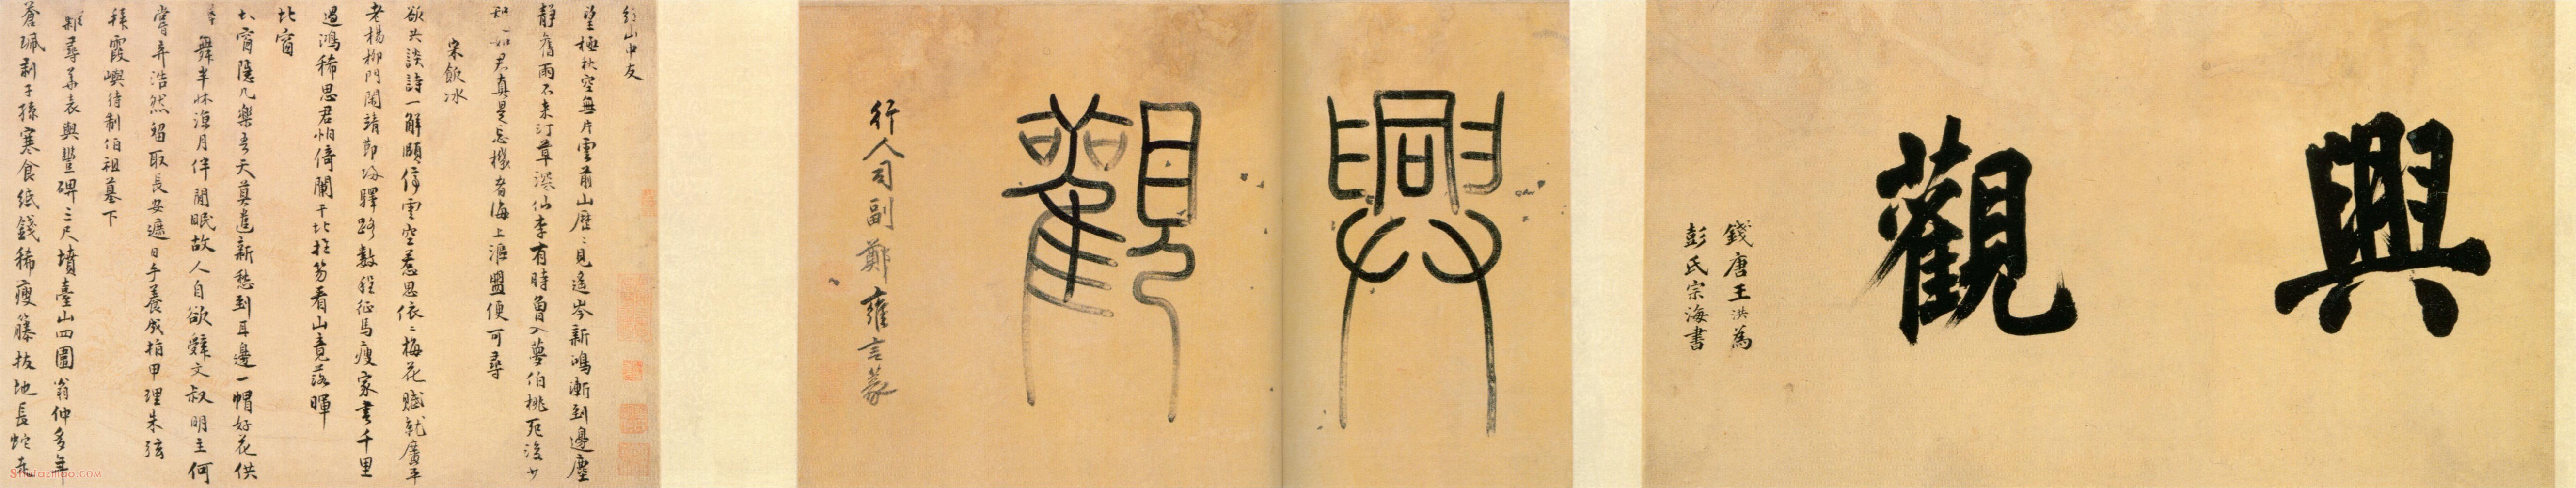 興觀
錢唐王洪為
彭氏宗海書
興觀
行人司副鄭雍言篆
山中友
望極秋空無片雲前山歷〻見遙岑新鴻漸到邊塵
靜舊雨不來汀草深仙李有時曾入夢伯桃死後少
知一如君真是忘機者海上漚盟便可尋
宋飲冰
欲共談詩一解頤停雲空惹思依〻梅花賦就廣平
老楊柳門閒靖節歸驛路數程征馬瘦家書千里
過鴻稀思君怕倚闌干北拄笏看山竟落暉
北窗
北窗隱几樂吾天莫遣新愁到耳邊一帽好花供
舞半牀涼月伴閒眠故人自欲辭文叔明主何
嘗弃浩然留取長安遮日手養成指甲理朱弦
拜霞嶼待制伯祖墓下
難尋華表與豐碑三尺墳臺山四圍翁仲多年
蒼珮剥子孫寒食紙錢稀瘦藤拔地長蛇走
Shufazidao.COM